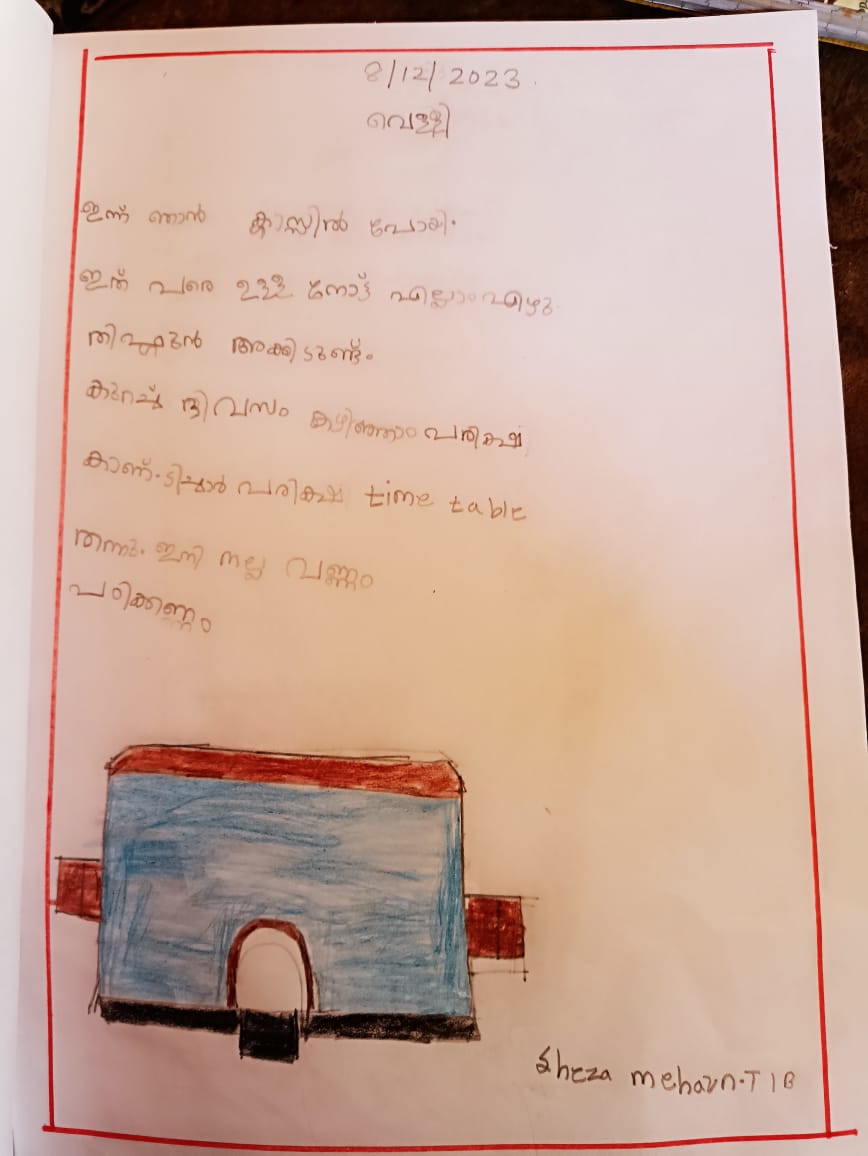 8/12/2023.
വെള്ളി
ഇന്ന് ഞാൻ ക്ലാസ്സിൽ പോയി.
ഇത് വരെ ഉള്ള നോട്ട് എല്ലാം എഴു
തി അക്കിടുണ്ട്.
കുറച്ച് ദിവസം കഴിഞ്ഞാം പരിക്ഷ
പരിക്ഷ time table
തന്നു. ഇനി നല്ല വണ്ണം
പഠിക്കണ്ണം
Sheza